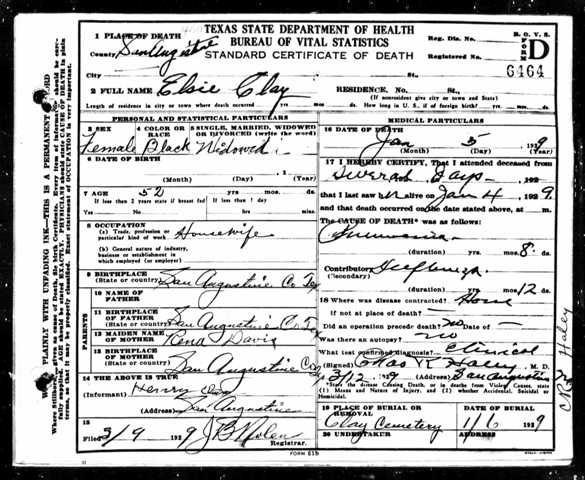 TEXAS STATE DEPARTMENT OF HEALTH
BUREAU OF VITAL STATISTICS
STANDARD CERTIFICATE OF DEATH
1 PLACE OF DEATH
County San Augustine
City St.
Reg. Dis. No.
Registered No.
B. O. V. S.
FORM D
6464
2 FULL NAME Elsie Clay
RESIDENCE. No. St.,
(If nonresident give city or town and State)
Length of residence in city or town where death occurred yrs. mos. ds. How long in U. S., if of foreign birth? yrs. mos. ds.
PERSONAL AND STATISTICAL PARTICULARS
3 SEX 4 COLOR OR RACE 5 SINGLE, MARRIED, WIDOWED OR DIVORCED (write the word)
Female Black Widowed
6 DATE OF BIRTH
(Month) (Day) (Year)
7 AGE 52 mos. ds.
If less than 2 years state if breast fed If less than 1 day
Yes No hrs. min.
8 OCCUPATION
(a) Trade, profession or particular kind of work Housewife
(b) General nature of industry, business or establishment in which employed (or employer)
9 BIRTHPLACE
(State or country) San Augustine Co Tex
PARENTS
10 NAME OF FATHER
11 BIRTHPLACE OF FATHER
(State or country) San Augustine Co. Tex
12 MAIDEN NAME OF MOTHER Rena Davis
13 BIRTHPLACE OF MOTHER
(State or country) San Augustine Co
14 THE ABOVE IS TRUE
(Informant) Henry Clay
(Address) San Augustine
15
Filed 3/9 1929 J B Nolen
Registrar.
MEDICAL PARTICULARS
16 DATE OF DEATH
Jan 5 1929
(Month) (Day) (Year)
17 I HEREBY CERTIFY, That I attended deceased from
Several Days, 1929
that I last saw h alive on Jan 4, 1929.
and that death occurred on the date stated above, at m.
The CAUSE OF DEATH* was as follows:
Pneumonia
(duration) yrs. mos. 8 ds.
Contributory Influenza
(Secondary)
(duration) yrs. mos. 12 ds.
18 Where was disease contracted? Home
If not at place of death? —
Did an operation precede death? no Date of —
Was there an autopsy? no
What test confirmed diagnosis? Clinical
(Signed) Chas R Haley, M. D.
3/12 1929 San Augustine
*State the disease Causing Death, or in deaths from Violent Causes, state (1) Means and Nature of Injury, and (2) whether Accidental, Suicidal or Homicidal.
19 PLACE OF BURIAL OR REMOVAL DATE OF BURIAL
Clay Cemetery 1/6 1929
20 UNDERTAKER ADDRESS
FORM 515